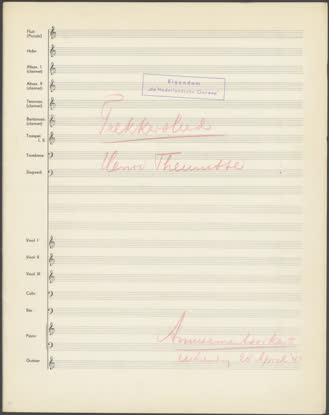 Fluit
(Piccolo)
Hobo
Altsax. I
(clarinet)
Altsax. II
(clarinet)
Tenorsax.
(clarinet)
Baritonsax.
(clarinet)
Trompet
I, II
Trombone
Slagwerk
Viool I
Viool II
Viool III
Cello
Bas
Piano
Guitaar
Eigendom
„De Nederlandsche Omroep"
Trekkerslied
Henri Theunisse
20 April